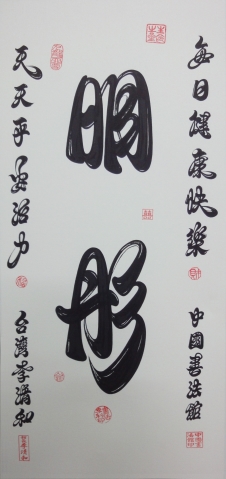 每日健康快樂
中國書法館
明彤
天天平安活力
台灣李清和